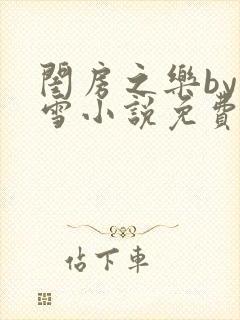 閨房之樂by
雪小說免費
佔下車